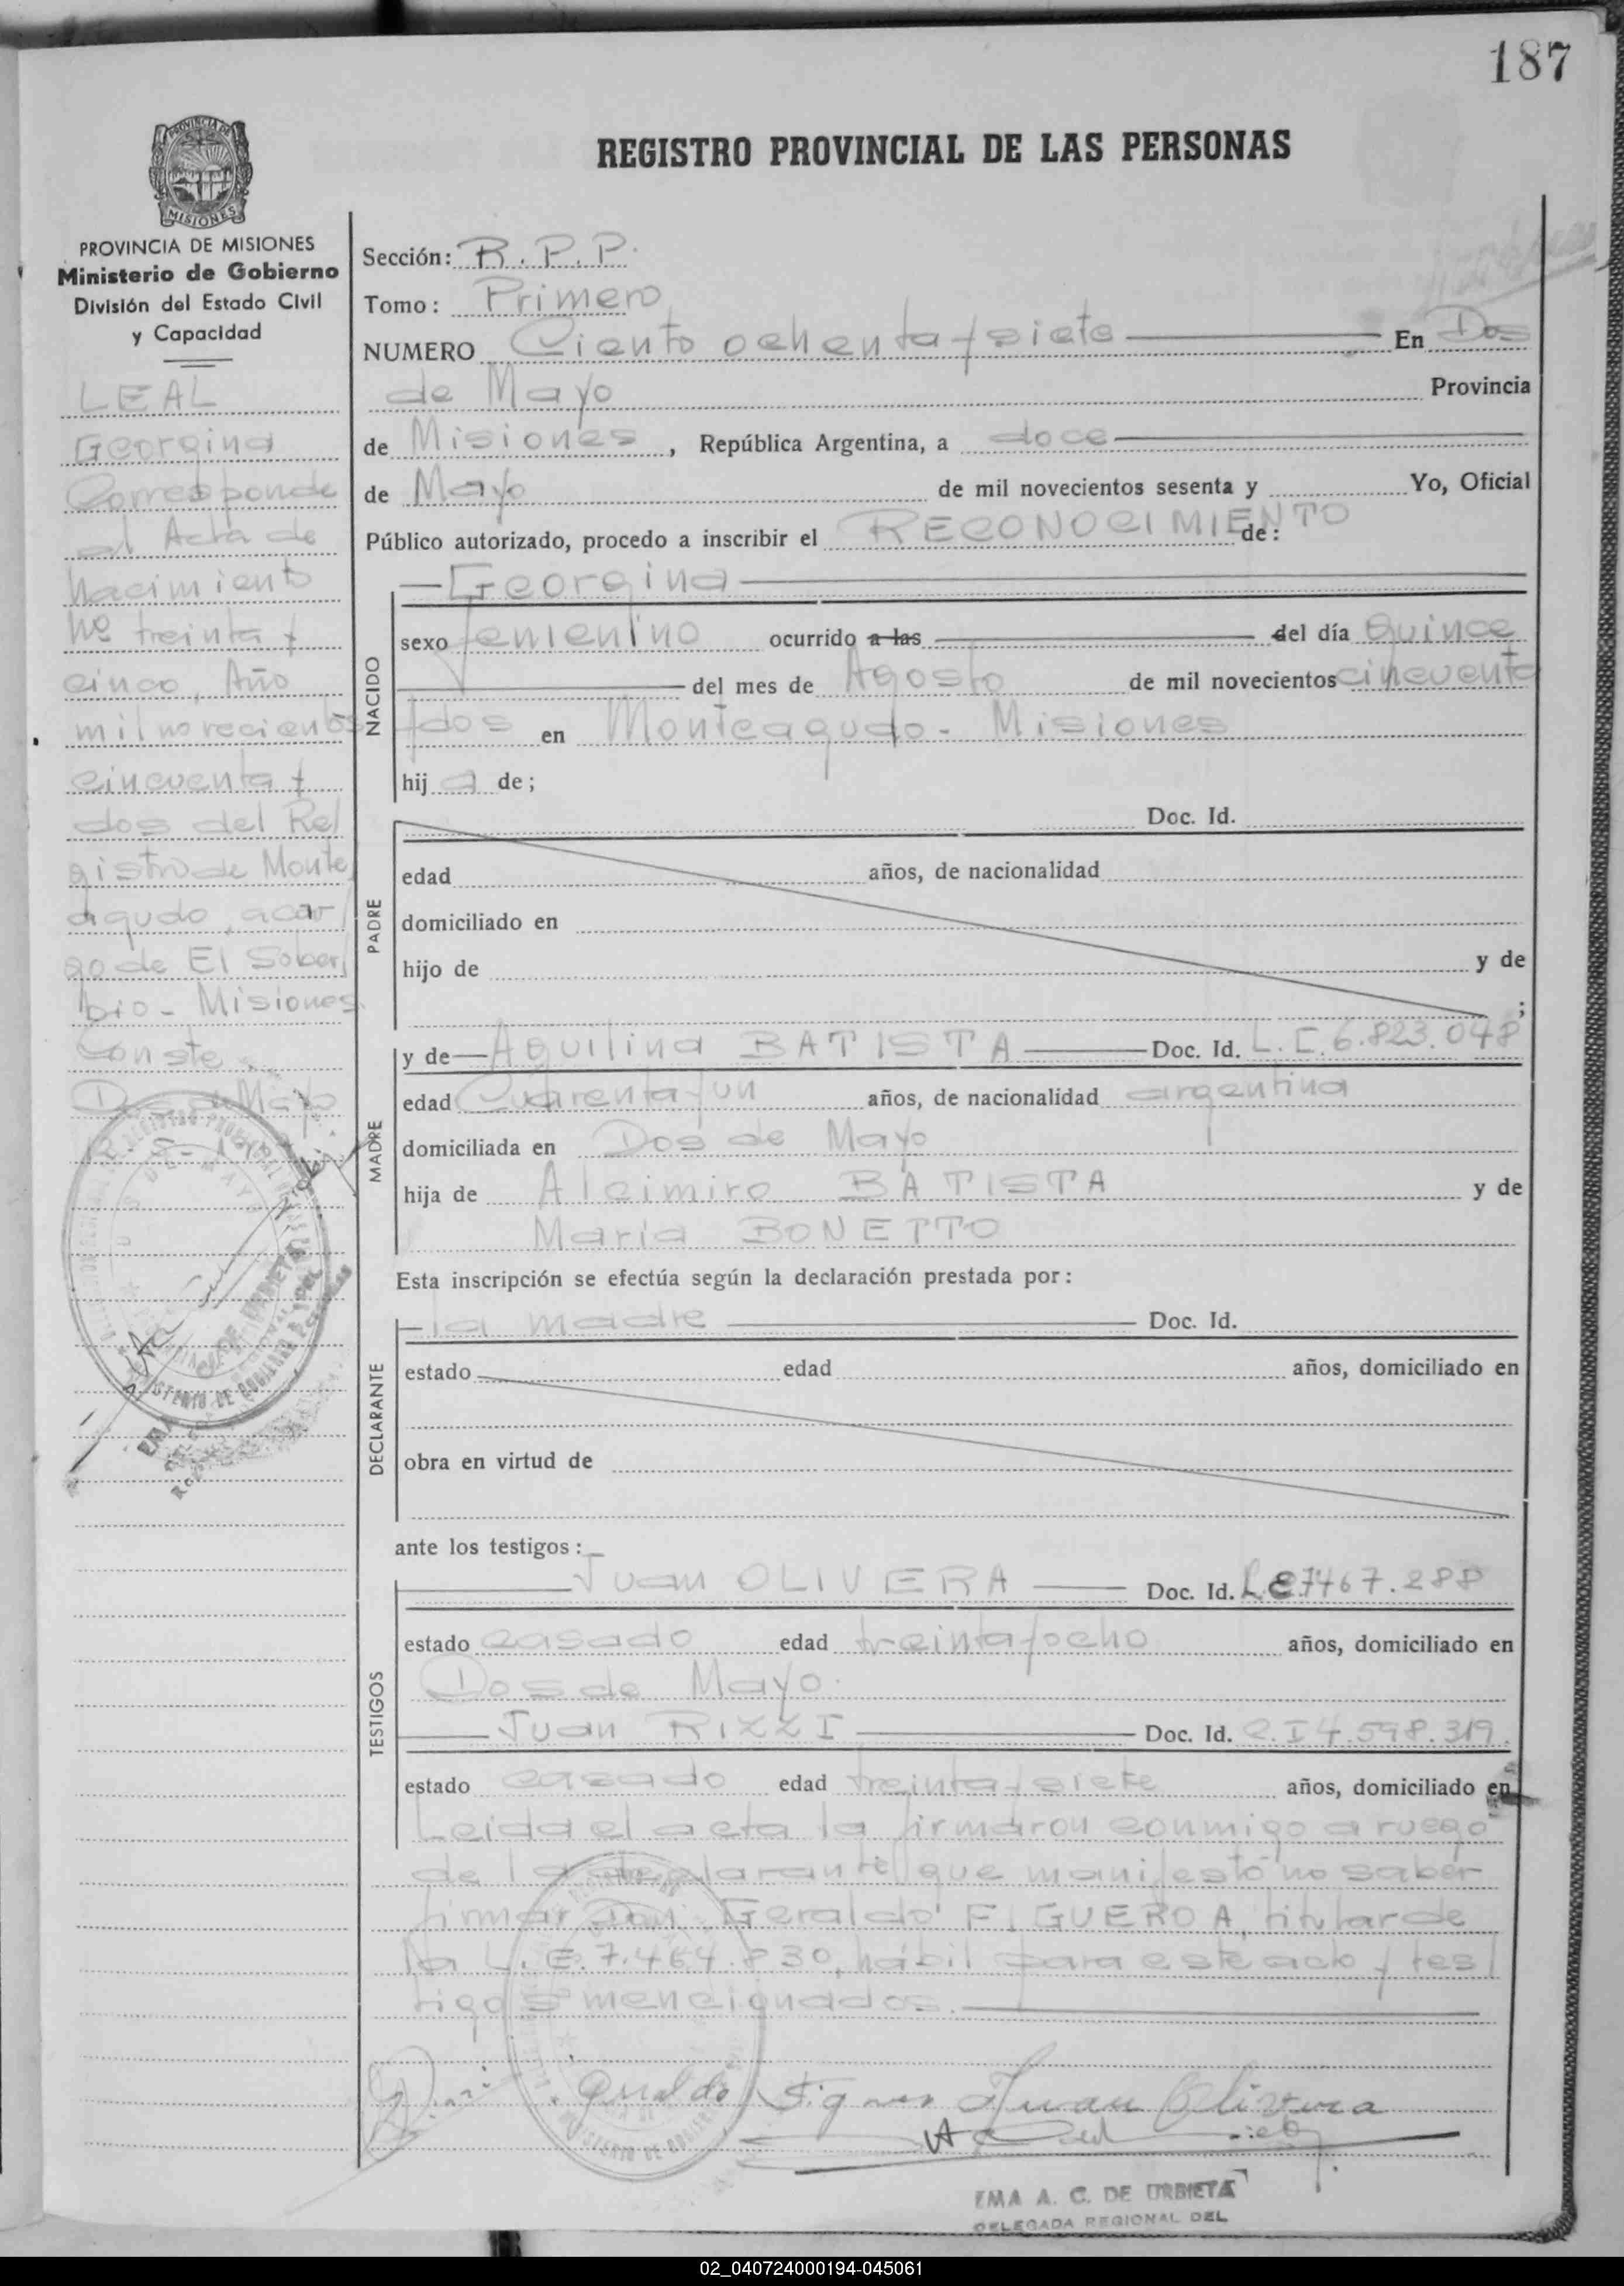 187
REGISTRO PROVINCIAL DE LAS PERSONAS
PROVINCIA DE MISIONES
Ministerio de Gobierno
División del Estado Civil
y Capacidad
LEAL
Georgina
Corresponde
al Acta de
Nacimiento
Nº treinta y
cinco, Año
mil novecientos
cincuenta y
dos del Re/
gistro de Monte/
agudo, a car/
go de El Sober/
bio - Misiones
Conste
Sección: R. P. P.
Tomo: Primero
NUMERO Ciento ochenta y siete En Dos
de Mayo Provincia
de Misiones, República Argentina, a doce
de Mayo de mil novecientos sesenta y Yo, Oficial
Público autorizado, procedo a inscribir el RECONOCIMIENTO de:
NACIDO
Georgina
sexo femenino ocurrido a las del día Quince
del mes de Agosto de mil novecientos cincuenta
y dos en Monteagudo - Misiones
hij a de;
PADRE
Doc. Id.
edad años, de nacionalidad
domiciliado en
hijo de y de
;
MADRE
y de Aquilina BATISTA Doc. Id. L.C. 6.823.048
edad Cuarenta y un años, de nacionalidad argentina
domiciliada en Dos de Mayo
hija de Alcimiro BATISTA y de
Maria BONETTO
Esta inscripción se efectúa según la declaración prestada por:
DECLARANTE
la madre Doc. Id.
estado edad años, domiciliado en
obra en virtud de
ante los testigos:
TESTIGOS
Juan OLIVERA Doc. Id. L.E 7467.288
estado casado edad treinta y ocho años, domiciliado en
Dos de Mayo.
Juan RIZZI Doc. Id. C.I 4.598.319.
estado casado edad treinta y siete años, domiciliado en
Leida el acta la firmaron conmigo a ruego
de la declarante que manifestó no saber
firmar Don Geraldo FIGUEROA, titular de
la L.E. 7.464.830, hábil para este acto y tes/
tigos mencionados.
Juan Olivera
EMA A. C. DE URBIETA
DELEGADA REGIONAL DEL
02_040724000194-045061